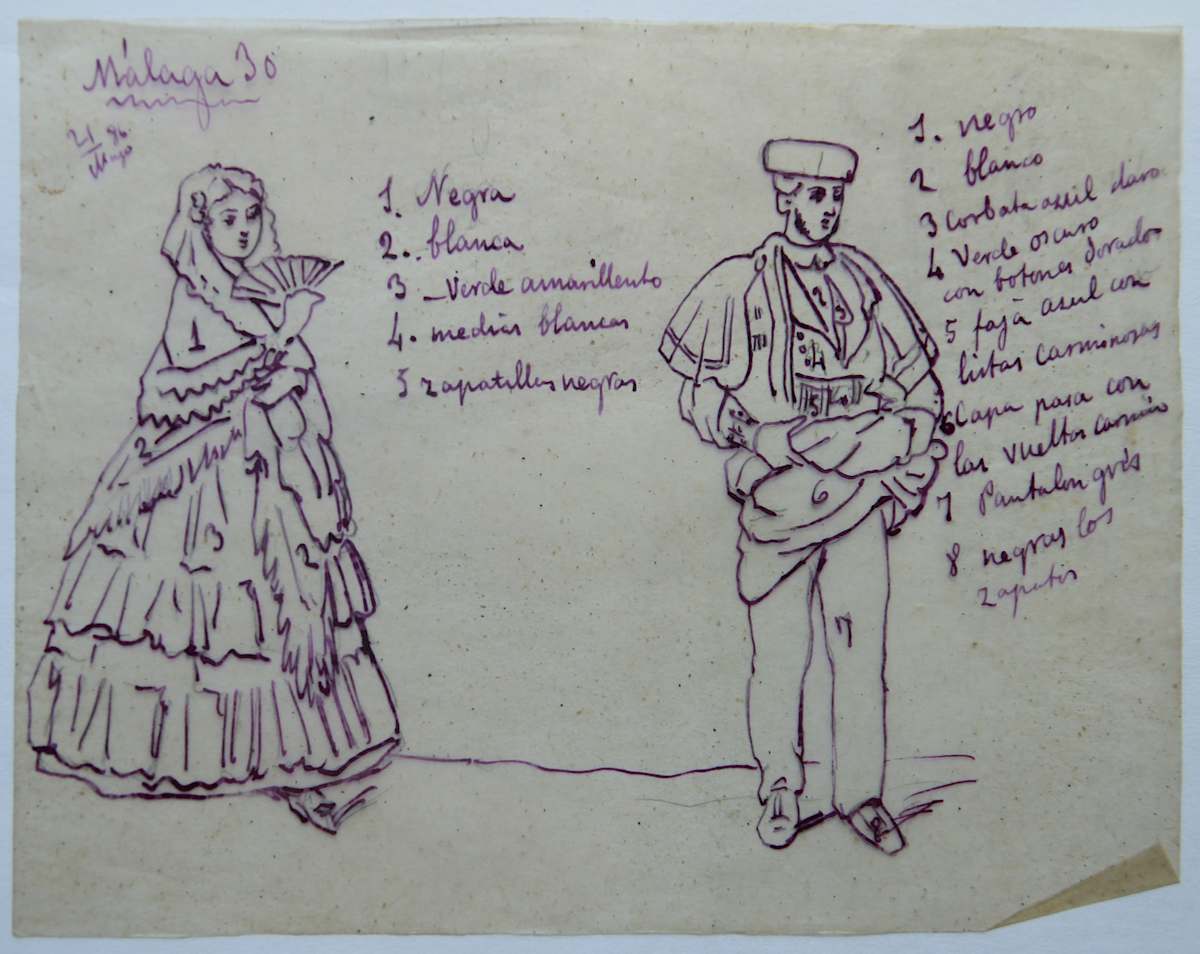 Málaga 30
21 86
Mayo
1. Negra
2.. blanca
3 _ Verde amarillento
4. medias blancas
5 zapatillas negras
1. negro
2 blanco
3 Corbata azul claro
4 Verde oscuro
con botones dorados
5 faja azul con
listas carminosas
6 Capa parda con
las vueltas carmin
7 Pantalon gris
8 negras los
zapatos
1
2
3
2
3
2
3
4
5
6
7
8